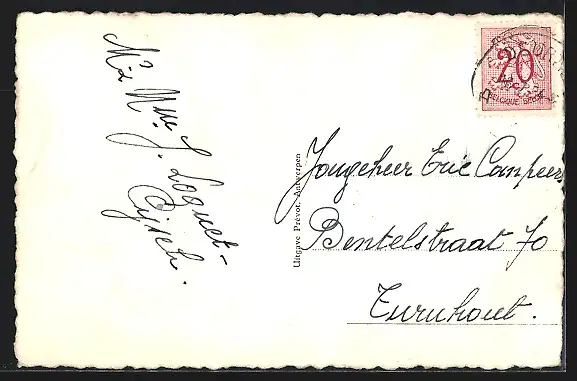 Mr & Mme
J. Loquet-
Uitgave Prévot, Antwerpen
Jongeheer Eric Campeers
Bentelstraat 70
Turnhout.
20
BELGIQUE BELGIE